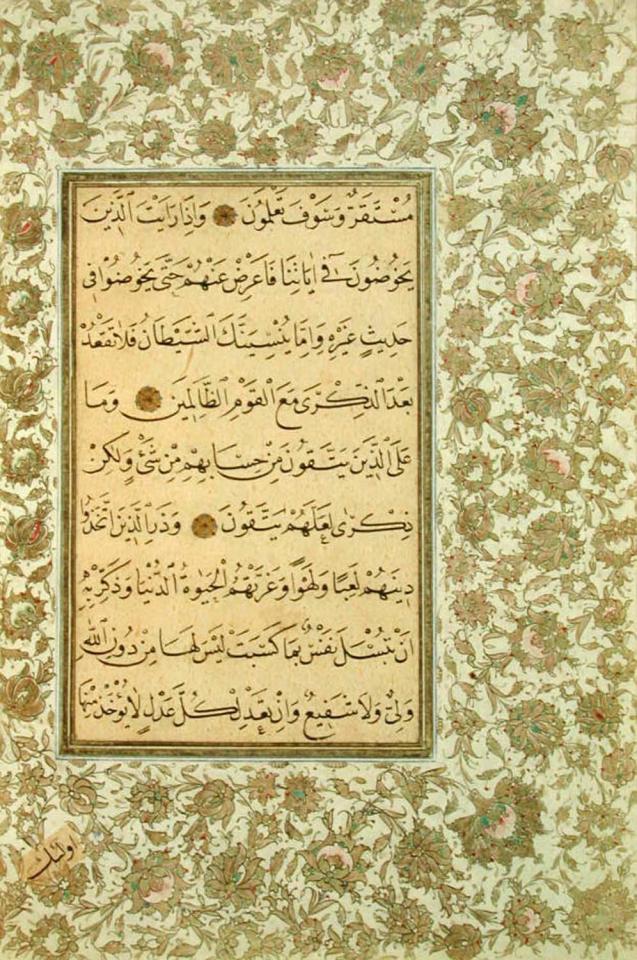 مُسْتَقَرٌّ وَسَوْفَ تَعْلَمُونَ وَاِذَا رَاَيْتَ الَّذِينَ
يَخُوضُونَ فِٓى اٰيَاتِنَا فَاَعْرِضْ عَنْهُمْ حَتّٰى يَخُوضُوا فِى
حَدِيثٍ غَيْرِهِ وَاِمَّا يُنْسِيَنَّكَ الشَّيْطَانُ فَلَا تَقْعُدْ
بَعْدَ الذِّكْرٰى مَعَ الْقَوْمِ الظَّالِمِينَ وَمَا
عَلَى الَّذِينَ يَتَّقُونَ مِنْ حِسَابِهِمْ مِنْ شَىْءٍ وَلٰكِنْ
ذِكْرٰى لَعَلَّهُمْ يَتَّقُونَ وَذَرِ الَّذِينَ اتَّخَذُوا
دِينَهُمْ لَعِبًا وَلَهْوًا وَغَرَّتْهُمُ الْحَيٰوةُ الدُّنْيَا وَذَكِّرْ بِهِ
اَنْ تُبْسَلَ نَفْسٌ بِمَا كَسَبَتْ لَيْسَ لَهَا مِنْ دُونِ اللّٰهِ
وَلِىٌّ وَلَا شَفِيعٌ وَاِنْ تَعْدِلْ كُلَّ عَدْلٍ لَا يُؤْخَذْ مِنْهَا
اولئك